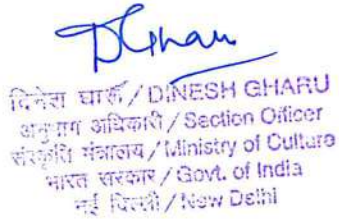 DGharu
दिनेश घारू / DINESH GHARU
अनुभाग अधिकारी / Section Officer
संस्कृति मंत्रालय / Ministry of Culture
भारत सरकार / Govt. of India
नई दिल्ली / New Delhi